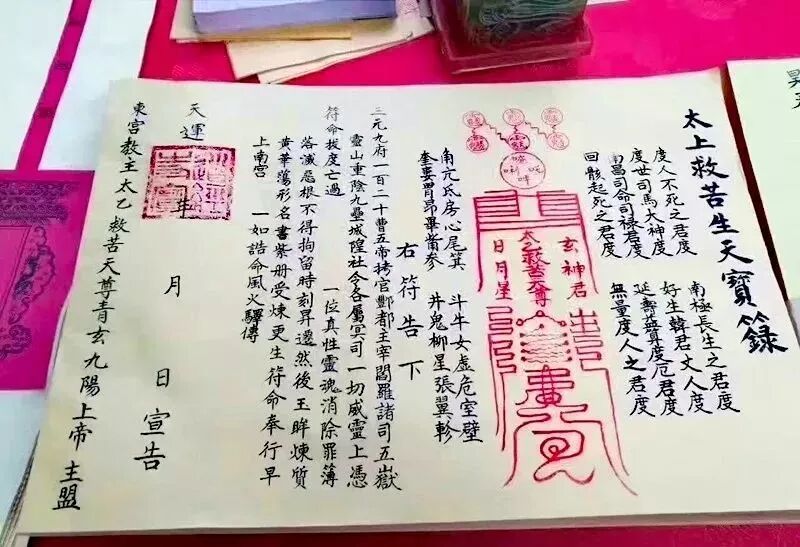 太上救苦生天寶籙
度人不死之君度
度世司馬大神度
南昌司命司禄君度
回骸起死之君度
南極長生之君度
好生韓君丈人度
延壽益算度厄君度
無量度人之君度
玄神君
太乙救苦天尊
日月星
角亢氐房心尾箕 斗牛女虛危室壁
奎婁胃昴畢觜參 井鬼柳星張翼軫
右符告下
三元九府一百二十曹五帝拷官酆都主宰閻羅諸司五嶽
靈山重陰九壘城隍社令各屬冥司一切威靈上憑
符命拔度亡過 一位真性靈魂消除罪簿
落滅惡根不得拘留時刻昇遷然後玉眸煉質
黄華蕩形名書紫册受煉更生符命奉行早
上南宫 一如誥命風火驛傳
天運 年 月 日 宣告
東宫教主太乙救苦天尊青玄九陽上帝 主盟